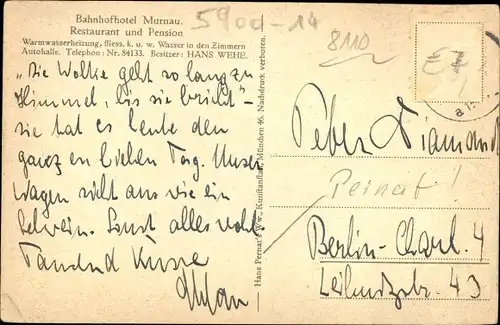 Bahnhofhotel Murnau.
Restaurant und Pension
Warmwasserheizung, fliess. k. u. w. Wasser in den Zimmern
Autohalle. Telephon: Nr. 84133. Besitzer: HANS WEHE.
5900-14
8110
E7
"Die Wolke geht so lang zu
Himmel, bis sie bricht" -
sie hat es heute den
ganzen lieben Tag. Unser
Wagen sieht aus wie ein
Schwein. Sonst alles wohl
Tausend Küsse
Hans Pernat's Ww., Kunstanstalt, München 46. Nachdruck verboten.
Peter Diamand
Pernat!
Berlin-Charl. 4
43